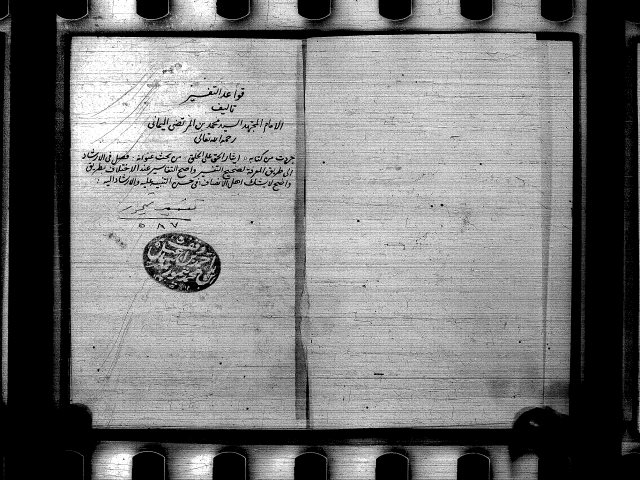 قواعد التفسير
تاليف
الامام المجتهد السيد محمد بن المرتضى اليمانى
رحمه الله تعالى
جردت من كتابه ايثار الحق على الخلق من بحث عنوانه فصل فى الارشاد
الى طريق المعرفة لصحيح التفسير واصح التفاسير عند الاختلاف بطريق
واضح لا يشك اهل الانصاف فى حسن التنبيه عليه والارشاد اليه
٥٨٧